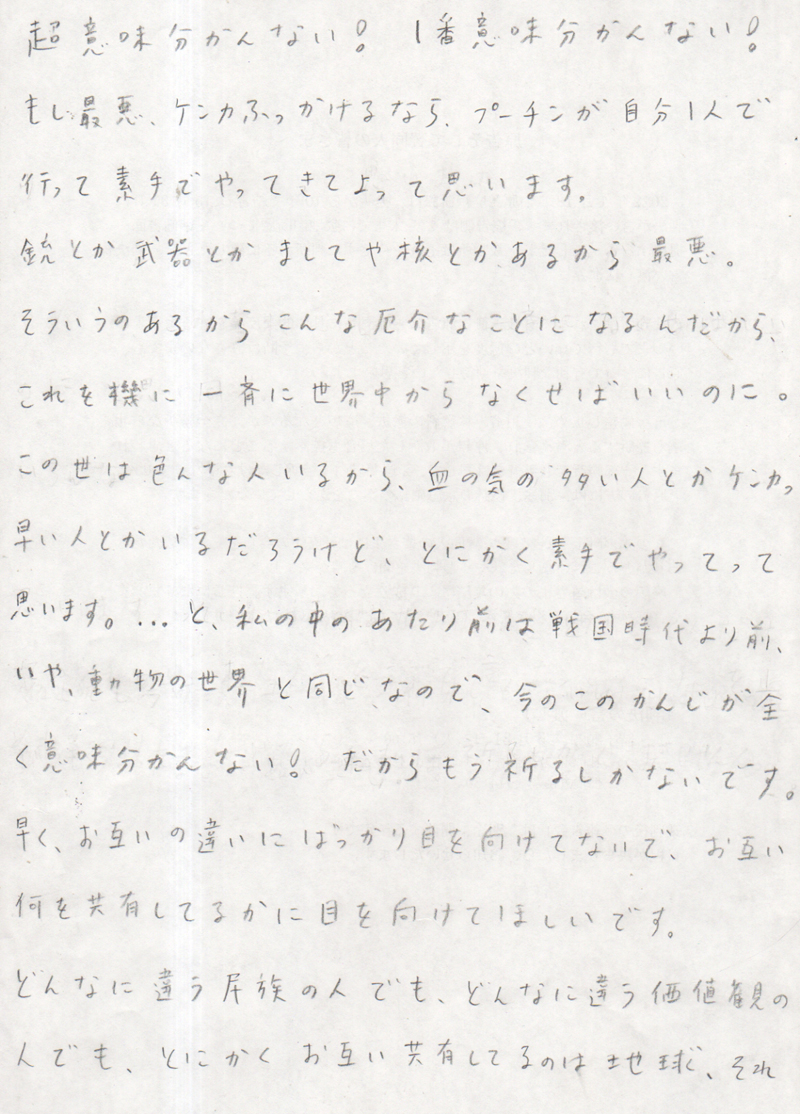 超意味分かんない! 1番意味分かんない!
もし最悪、ケンカふっかけるなら、プーチンが自分1人で
行って素手でやってきてよって思います。
銃とか武器とかましてや核とかあるから最悪。
そういうのあるからこんな厄介なことになるんだから、
これを機に一斉に世界中からなくせばいいのに。
この世は色んな人いるから、血の気の多い人とかケンカっ
早い人とかいるだろうけど、とにかく素手でやってって
思います。...と、私の中のあたり前は戦国時代より前、
いや、動物の世界と同じなので、今のこのかんじが全
く意味分かんない! だからもう祈るしかないです。
早く、お互いの違いにばっかり目を向けてないで、お互い
何を共有してるかに目を向けてほしいです。
どんなに違う民族の人でも、どんなに違う価値観の
人でも、とにかくお互い共有してるのは地球、それ